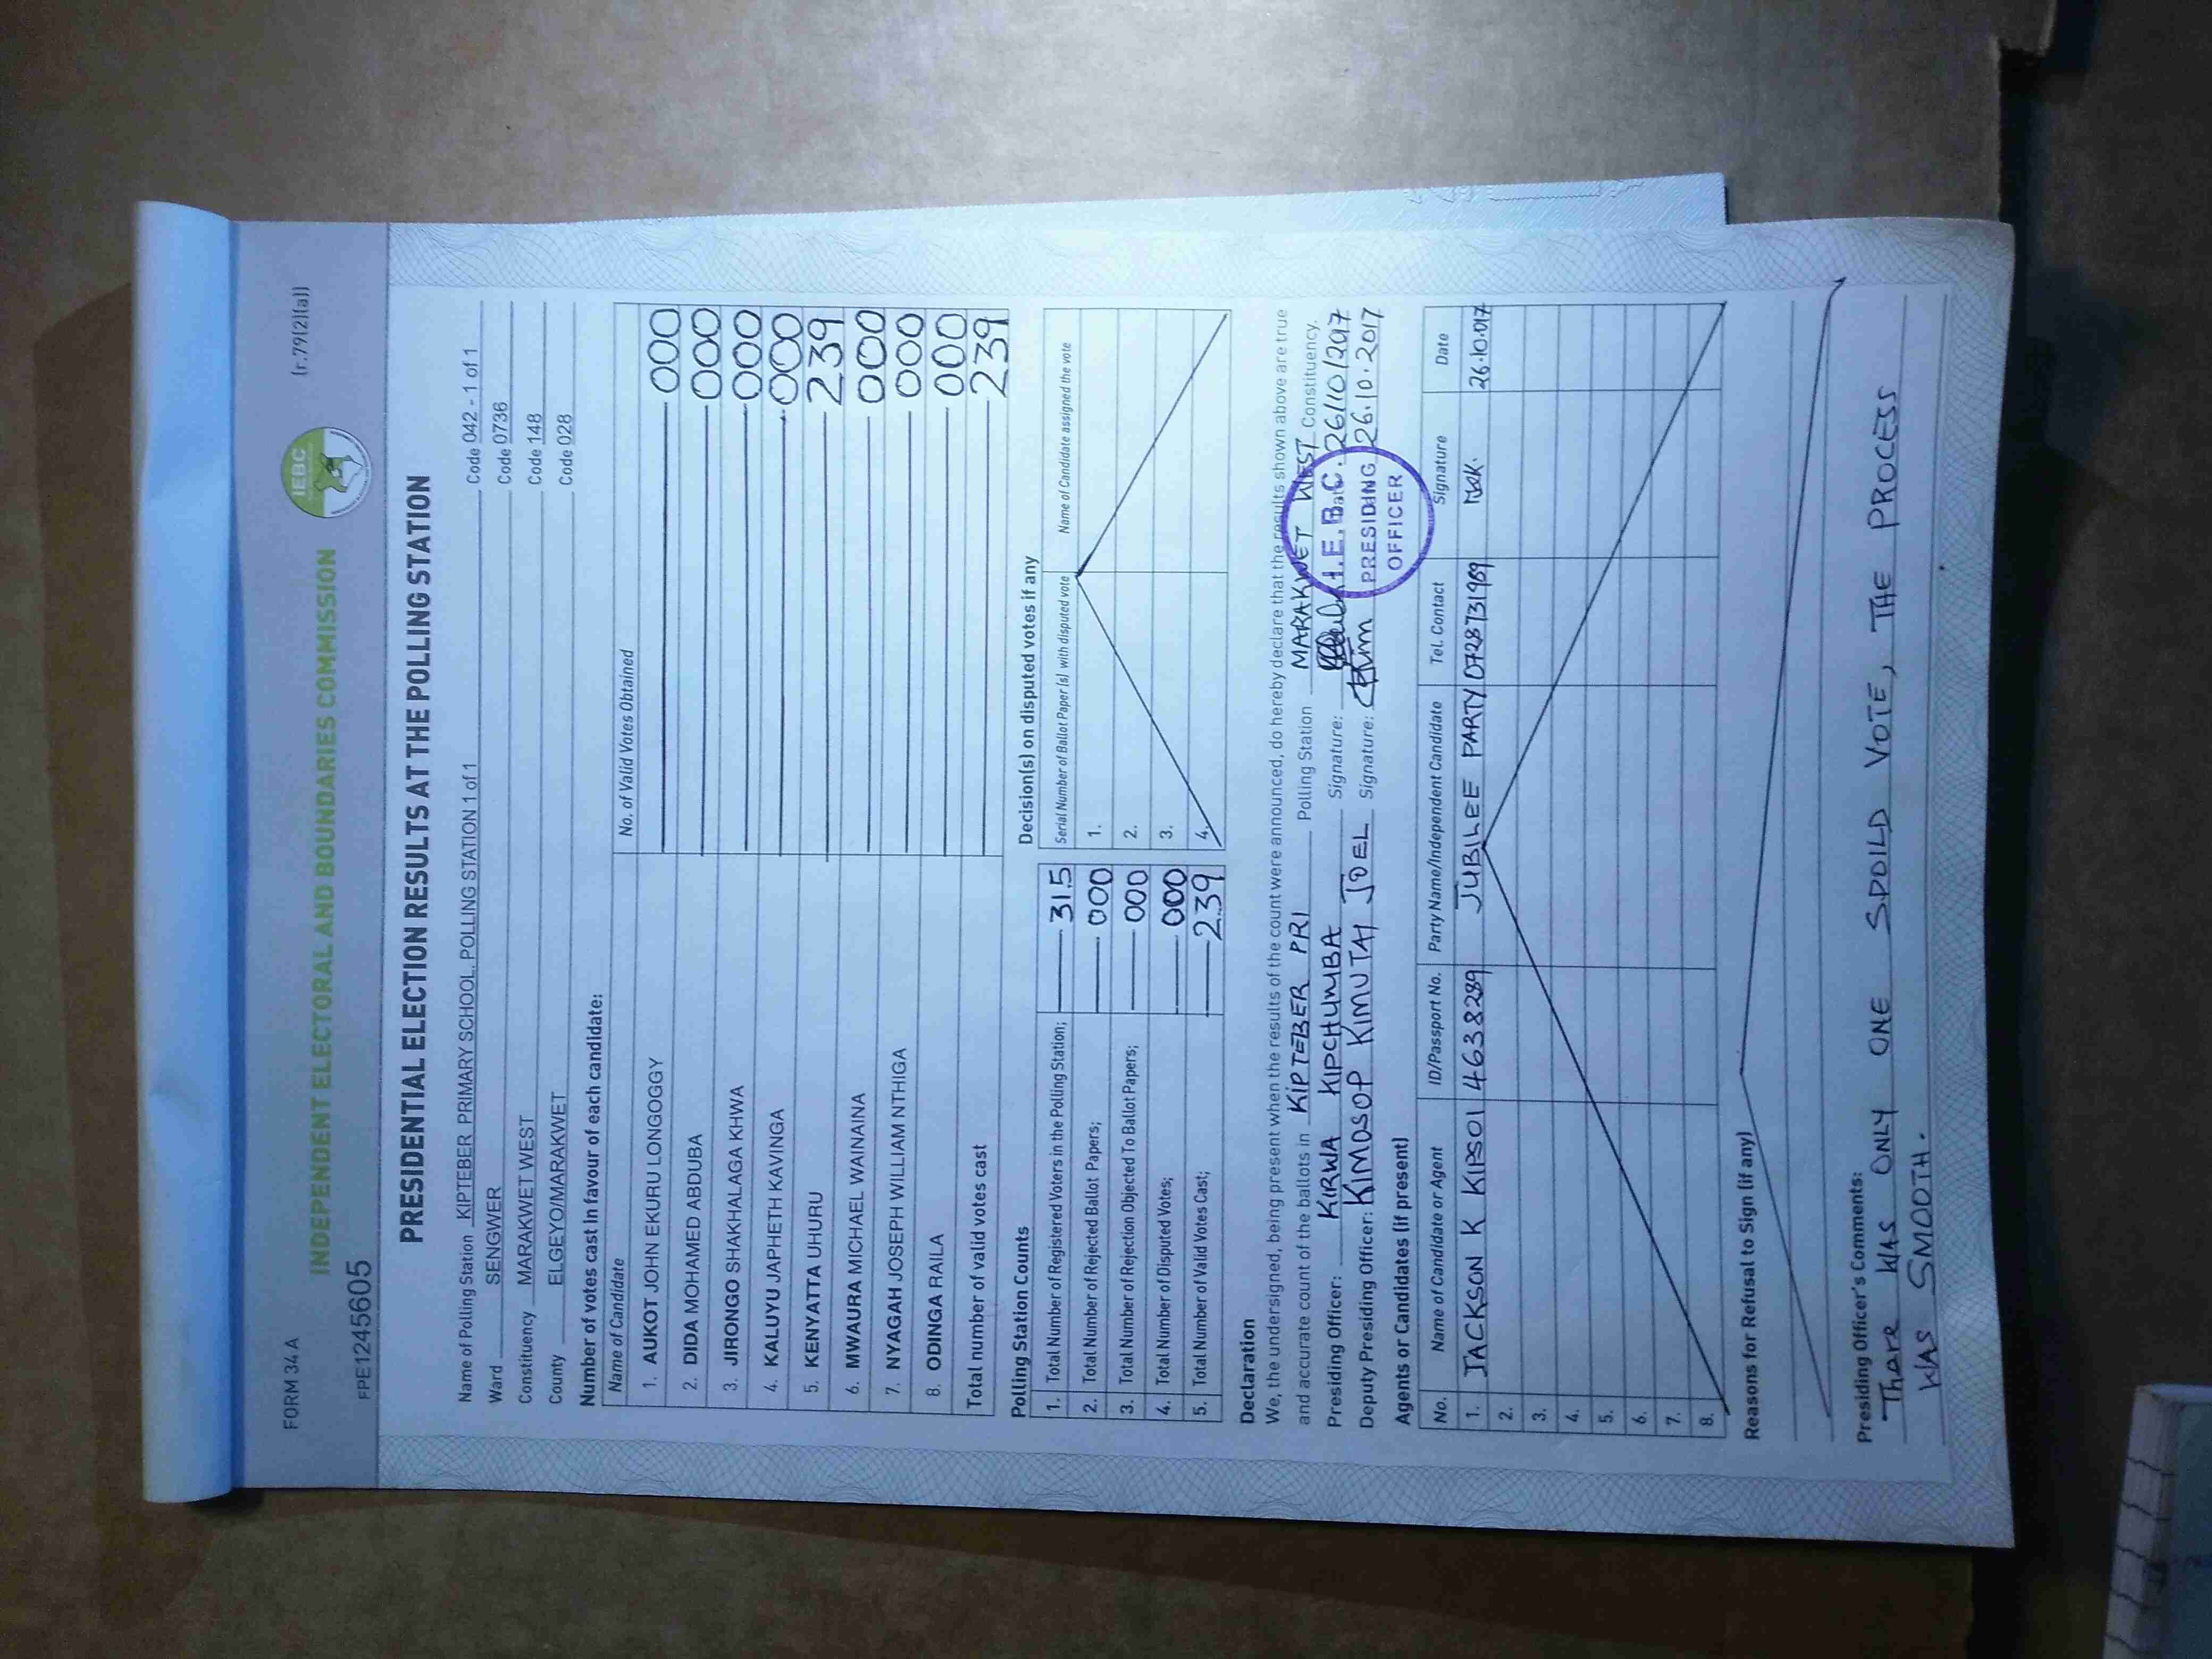 FORM 34 A
(r.79(2)(a))
IEBC
INDEPENDENT ELECTORAL AND BOUNDARIES COMMISSION
FPE1245605
PRESIDENTIAL ELECTION RESULTS AT THE POLLING STATION
Name of Polling Station KIPTEBER PRIMARY SCHOOL, POLLING STATION 1 of 1 Code 042 - 1 of 1
Ward SENGWER Code 0736
Constituency MARAKWET WEST Code 148
County ELGEYO/MARAKWET Code 028
Number of votes cast in favour of each candidate:
Name of Candidate No. of Valid Votes Obtained
1. AUKOT JOHN EKURU LONGOGGY 000
2. DIDA MOHAMED ABDUBA 000
3. JIRONGO SHAKHALAGA KHWA 000
4. KALUYU JAPHETH KAVINGA 000
5. KENYATTA UHURU 239
6. MWAURA MICHAEL WAINAINA 000
7. NYAGAH JOSEPH WILLIAM NTHIGA 000
8. ODINGA RAILA 000
Total number of valid votes cast 239
Polling Station Counts
1. Total Number of Registered Voters in the Polling Station; 315
2. Total Number of Rejected Ballot Papers; 000
3. Total Number of Rejection Objected To Ballot Papers; 000
4. Total Number of Disputed Votes; 000
5. Total Number of Valid Votes Cast; 239
Decision(s) on disputed votes if any
Serial Number of Ballot Paper (s) with disputed vote Name of Candidate assigned the vote
1.
2.
3.
4.
Declaration
We, the undersigned, being present when the results of the count were announced, do hereby declare that the results shown above are true
and accurate count of the ballots in KIPTEBER PRI Polling Station MARAKWET WEST Constituency.
Presiding Officer: KIRWA KIPCHUMBA Signature: Date 26/10/2017
Deputy Presiding Officer: KIMOSOP KIMUTAI JOEL Signature: 26.10.2017
I.E.B.C.
PRESIDING
OFFICER
Agents or Candidates (if present)
No. Name of Candidate or Agent ID/Passport No. Party Name/Independent Candidate Tel. Contact Signature Date
1. JACKSON K KIPSOI 4638289 JUBILEE PARTY 0728731989 26.10.017
2.
3.
4.
5.
6.
7.
8.
Reasons for Refusal to Sign (if any)
Presiding Officer's Comments:
There WAS ONLY ONE SPOILD VOTE, THE PROCESS
WAS SMOOTH.